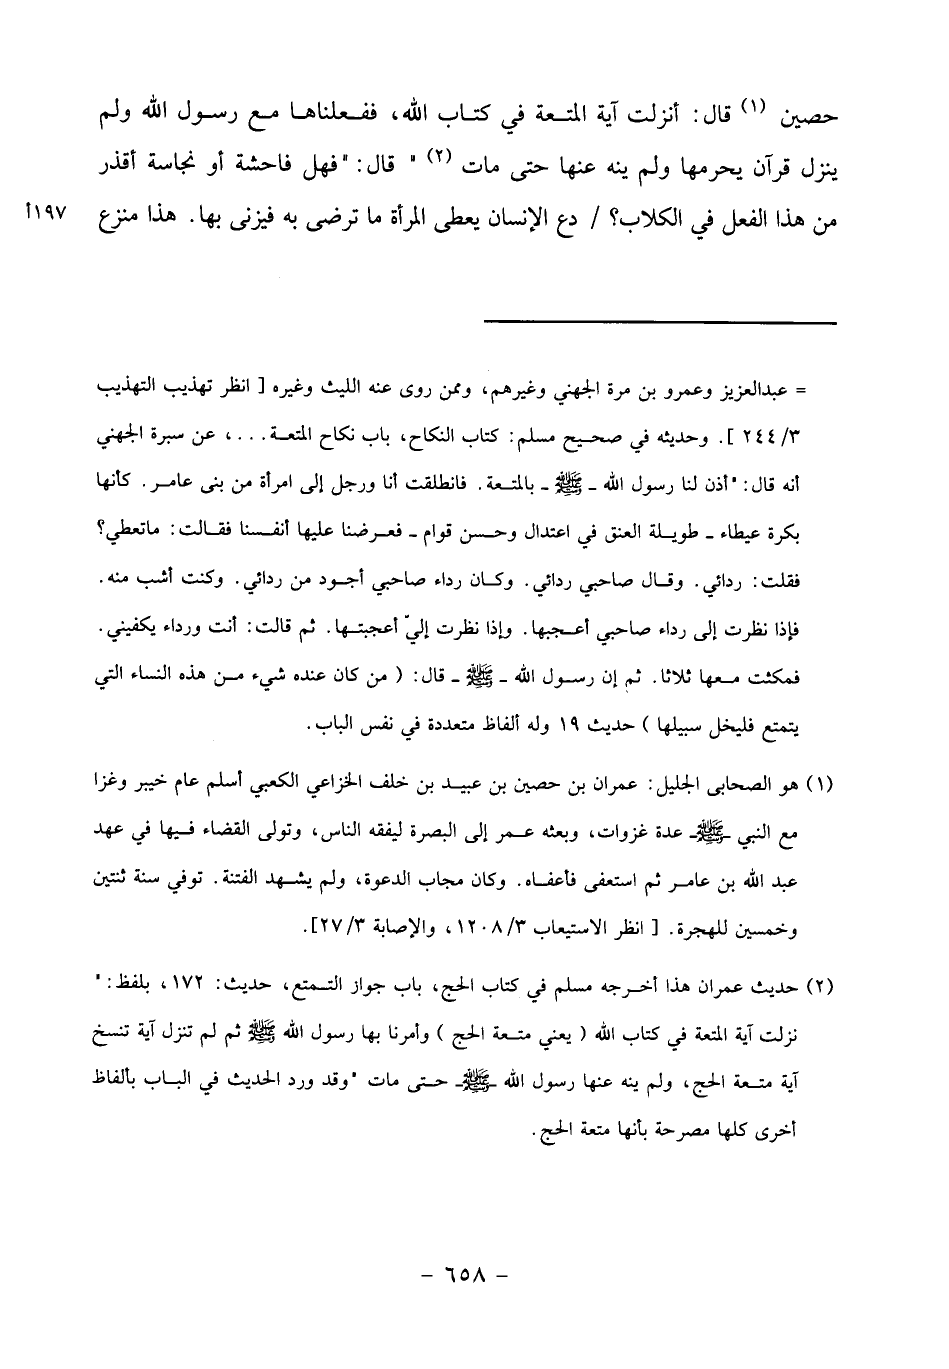 حصين (١) قال: أنزلت آية المتعة في كتاب الله، ففعلناها مع رسول الله ولم
ينزل قرآن يحرمها ولم ينه عنها حتى مات (٢) " قال: "فهل فاحشة أو نجاسة أقذر
من هذا الفعل في الكلاب؟ / دع الإنسان يعطى المرأة ما ترضى به فيزنى بها. هذا منزع
١٩٧أ
= عبدالعزيز وعمرو بن مرة الجهني وغيرهم، وممن روى عنه الليث وغيره [ انظر تهذيب التهذيب
٣/ ٢٤٤ ]. وحديثه في صحيح مسلم: كتاب النكاح، باب نكاح المتعة...، عن سبرة الجهني
أنه قال: "أذن لنا رسول الله ـ ﷺ ـ بالمتعة. فانطلقت أنا ورجل إلى امرأة من بنى عامر. كأنها
بكرة عيطاء ـ طويلة العنق في اعتدال وحسن قوام ـ فعرضنا عليها أنفسنا فقالت: ماتعطي؟
فقلت: ردائي. وقال صاحبي ردائي. وكان رداء صاحبي أجود من ردائي. وكنت أشب منه.
فإذا نظرت إلى رداء صاحبي أعجبها. وإذا نظرت إليّ أعجبتها. ثم قالت: أنت ورداء يكفيني.
فمكثت معها ثلاثا. ثم إن رسول الله ـ ﷺ ـ قال: ( من كان عنده شيء من هذه النساء التي
يتمتع فليخل سبيلها ) حديث ١٩ وله ألفاظ متعددة في نفس الباب.
(١) هو الصحابى الجليل: عمران بن حصين بن عبيد بن خلف الخزاعي الكعبي أسلم عام خيبر وغزا
مع النبي ـﷺـ عدة غزوات، وبعثه عمر إلى البصرة ليفقه الناس، وتولى القضاء فيها في عهد
عبد الله بن عامر ثم استعفى فأعفاه. وكان مجاب الدعوة، ولم يشهد الفتنة. توفي سنة ثنتين
وخمسين للهجرة. [ انظر الاستيعاب ٣/ ١٢٠٨، والإصابة ٣/ ٢٧].
(٢) حديث عمران هذا أخرجه مسلم في كتاب الحج، باب جواز التمتع، حديث: ١٧٢، بلفظ: "
نزلت آية المتعة في كتاب الله ( يعني متعة الحج ) وأمرنا بها رسول الله ﷺ ثم لم تنزل آية تنسخ
آية متعة الحج، ولم ينه عنها رسول الله ـﷺـ حتى مات "وقد ورد الحديث في الباب بألفاظ
أخرى كلها مصرحة بأنها متعة الحج.
- ٦٥٨ -